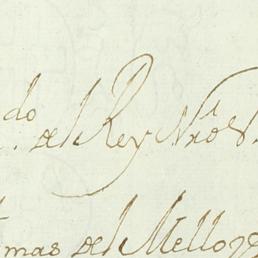 do del Rey Nro S.
mas del Mello